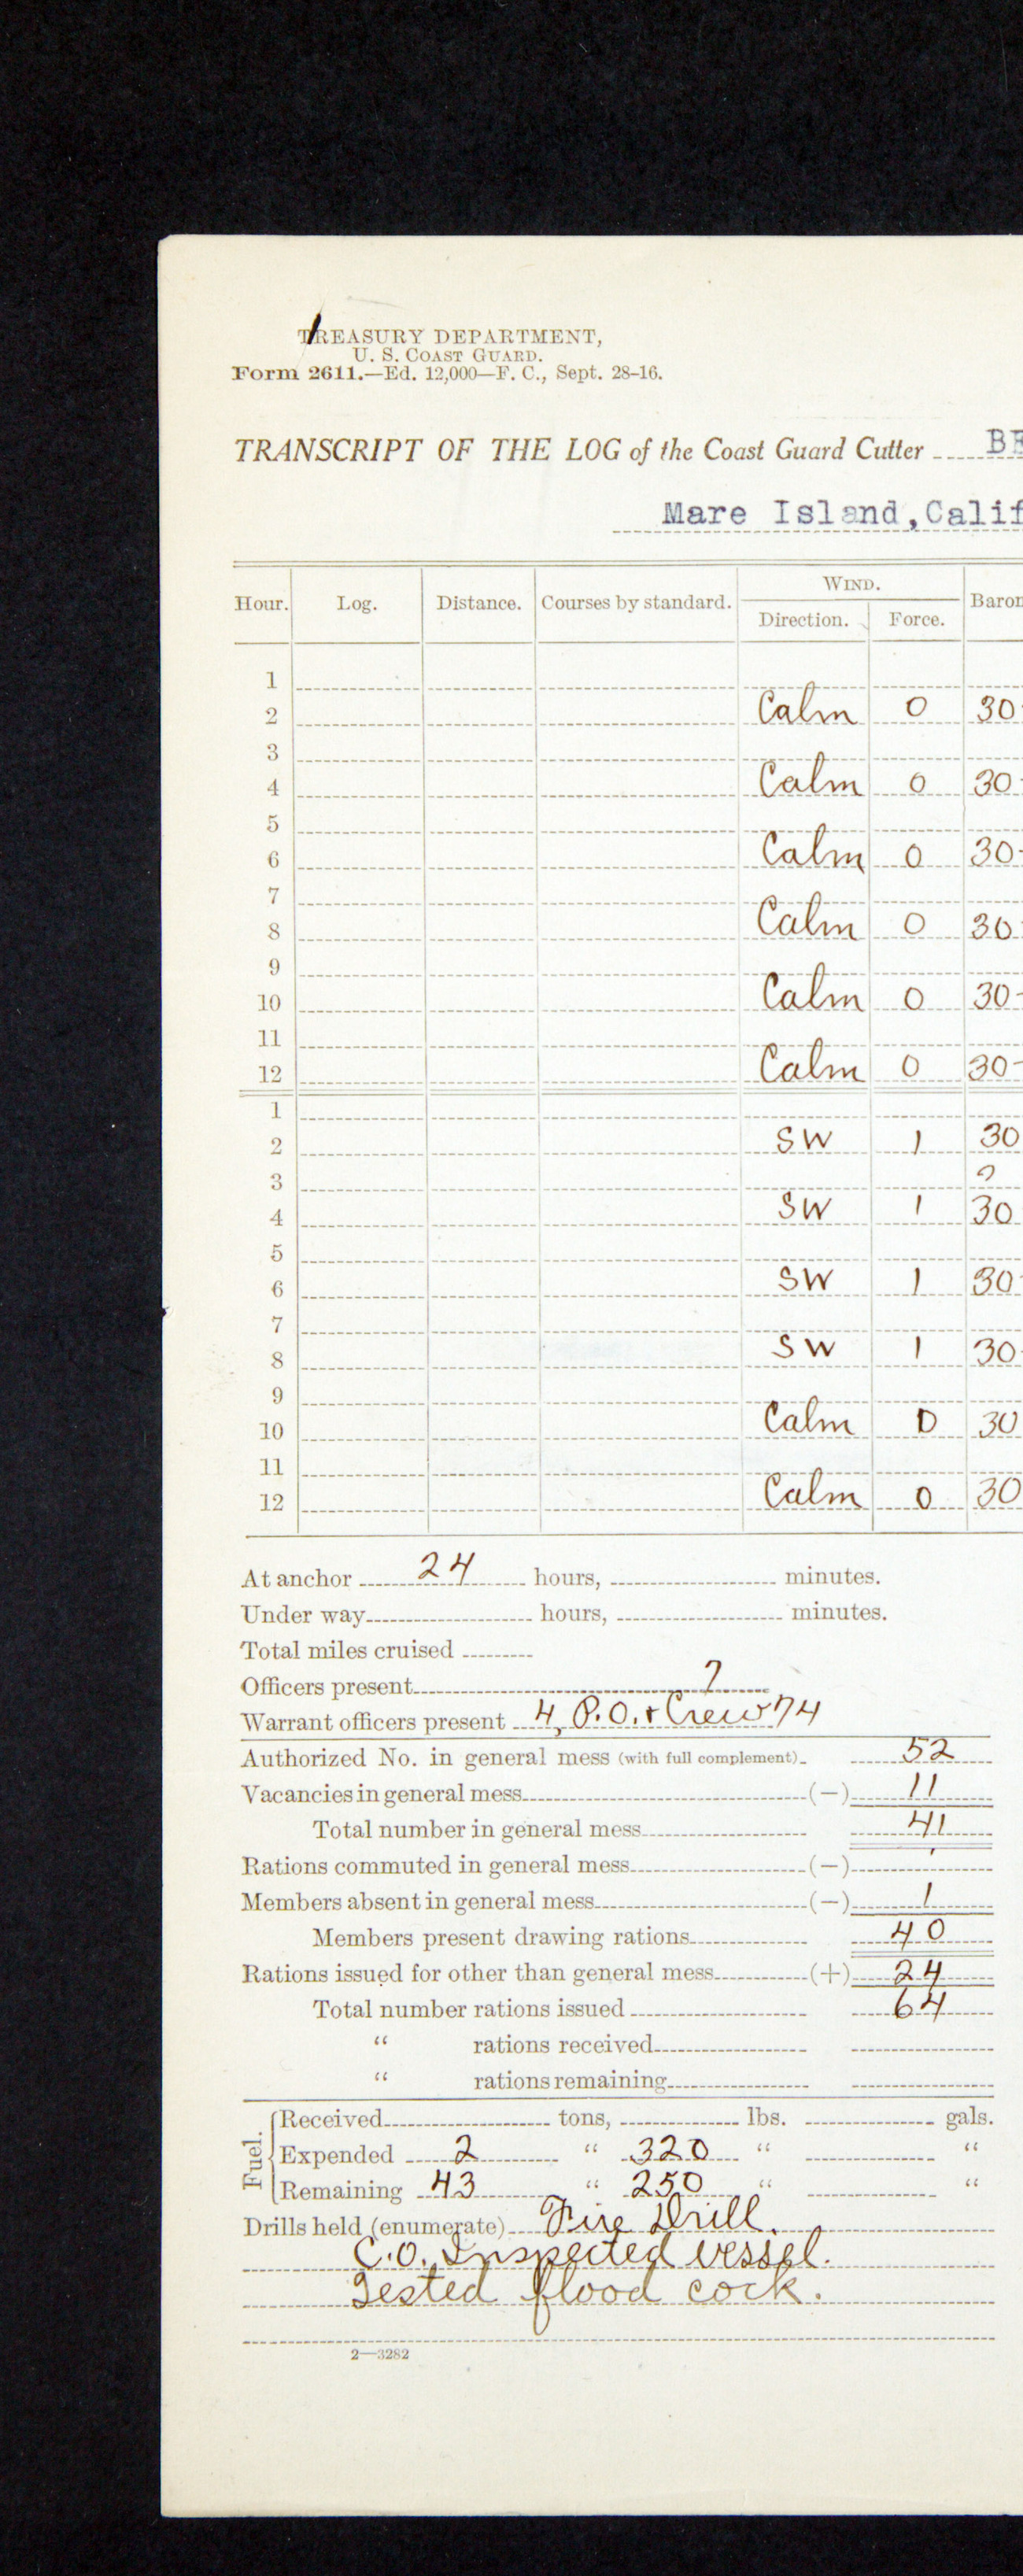 TREASURY DEPARTMENT,
U. S. COAST GUARD.
Form 2611.—Ed. 12,000—F. C., Sept. 28-16.
TRANSCRIPT OF THE LOG of the Coast Guard Cutter BE
Mare Island, Calif
Hour. Log. Distance. Courses by standard. WIND. Baron
Direction. Force.
1
2 Calm 0 30
3
4 Calm 0 30
5
6 Calm 0 30
7
8 Calm 0 30
9
10 Calm 0 30
11
12 Calm 0 30
1
2 SW 1 30
3
4 SW 1 30
5
6 SW 1 30
7
8 SW 1 30
9
10 Calm 0 30
11
12 Calm 0 30
At anchor 24 hours, minutes.
Under way hours, minutes.
Total miles cruised
Officers present 7
Warrant officers present 4, P.O. & Crew 74
Authorized No. in general mess (with full complement) 52
Vacancies in general mess (—) 11
Total number in general mess 41
Rations commuted in general mess (—)
Members absent in general mess (—) 1
Members present drawing rations 40
Rations issued for other than general mess (+) 24
Total number rations issued 64
" rations received
" rations remaining
Fuel. Received tons, lbs. gals.
Expended 2 " 320 " "
Remaining 43 " 250 " "
Drills held (enumerate) Fire Drill.
C.O. Inspected vessel.
Tested flood cock.
2—3282